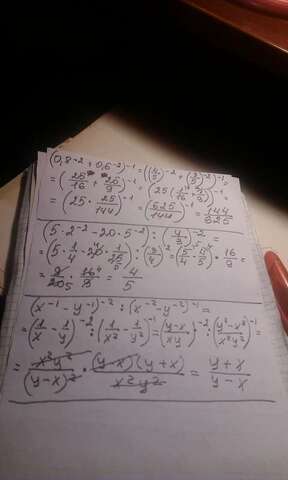 (0,8⁻² + 0,6⁻²)⁻¹ = ((4/5)⁻² + (3/5)⁻²)⁻¹ =
= (25/16 + 25/9)⁻¹ = (25(1/16 + 1/9))⁻¹ =
= (25 · 25/144)⁻¹ = (625/144)⁻¹ = 144/625
(5·2⁻² - 20·5⁻²) : (4/3)⁻² =
= (5·1/4 - 20·1/25) : (3/4)² = (5/4 - 4/5) · 16/9 =
= 9/20 · 16/9 = 4/5
(x⁻¹ - y⁻¹)⁻² : (x⁻² - y⁻²)⁻¹ =
= (1/x - 1/y)⁻² : (1/x² - 1/y²)⁻¹ = (y-x/xy)⁻² : (y²-x²/x²y²)⁻¹ =
= x²y²/(y-x)² · (y-x)(y+x)/x²y² = y+x/y-x